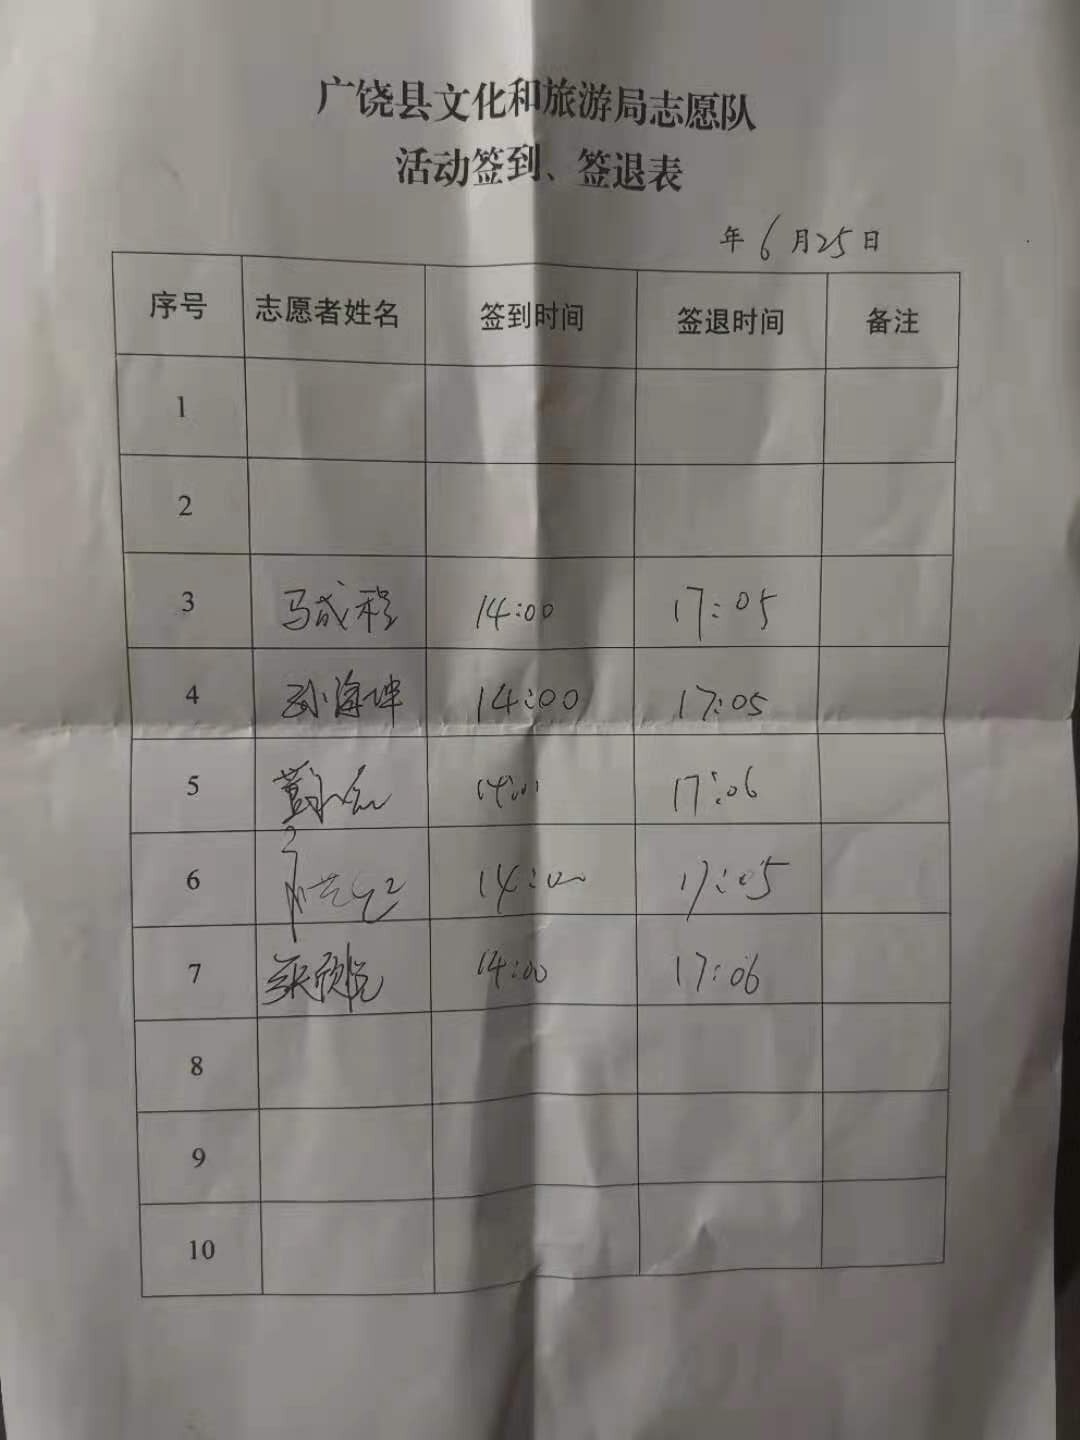 广饶县文化和旅游局志愿队
活动签到、签退表
年6月25日
序号 志愿者姓名 签到时间 签退时间 备注
1
2
3 马成程 14:00 17:05
4 孙海坤 14:00 17:05
5 14:01 17:06
6 14:00 17:05
7 张欣悦 14:00 17:06
8
9
10